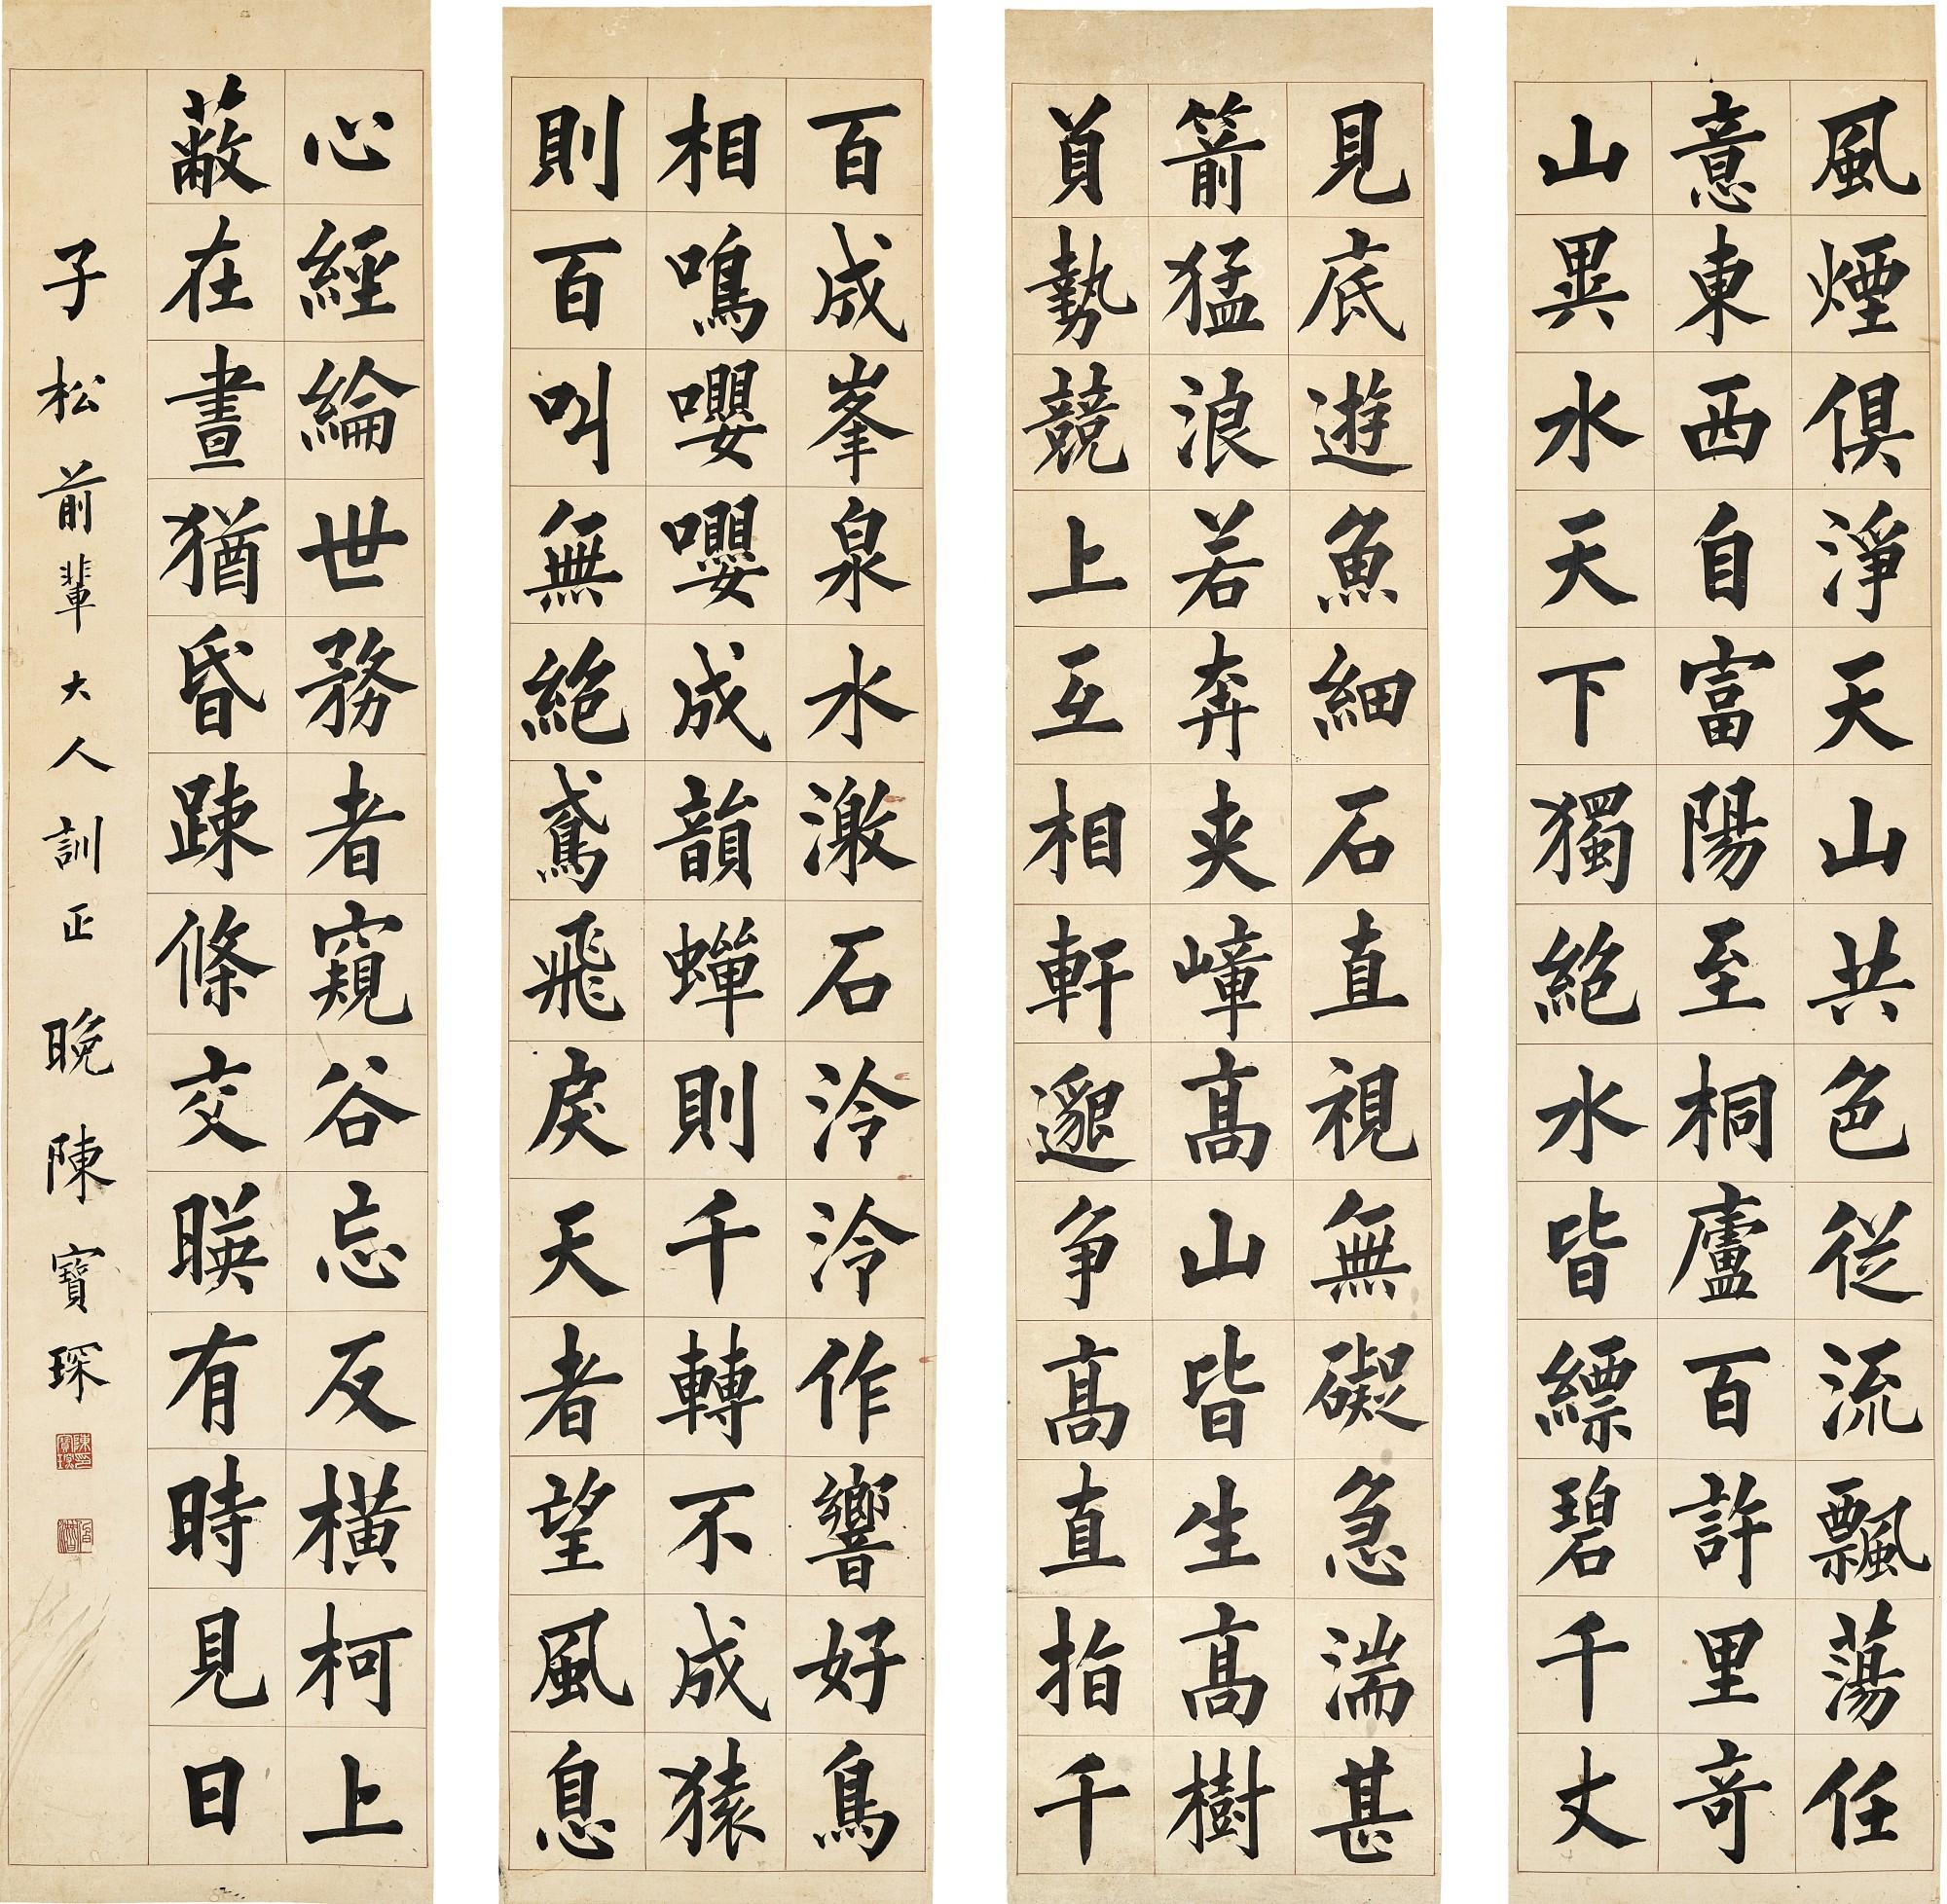 風煙俱淨天山共色從流飄蕩任
意東西自富陽至桐廬百許里奇
山異水天下獨絕水皆縹碧千丈
見底遊魚細石直視無礙急湍甚
箭猛浪若奔夾嶂高山皆生高樹
負勢競上互相軒邈爭高直指千
百成峯泉水激石泠泠作響好鳥
相鳴嚶嚶成韻蟬則千轉不成猿
則百叫無絕鳶飛戾天者望風息
心經綸世務者窺谷忘反橫柯上
蔽在晝猶昏踈條交暎有時見日
子松前輩大人訓正 晚陳寶琛
陳寶琛印